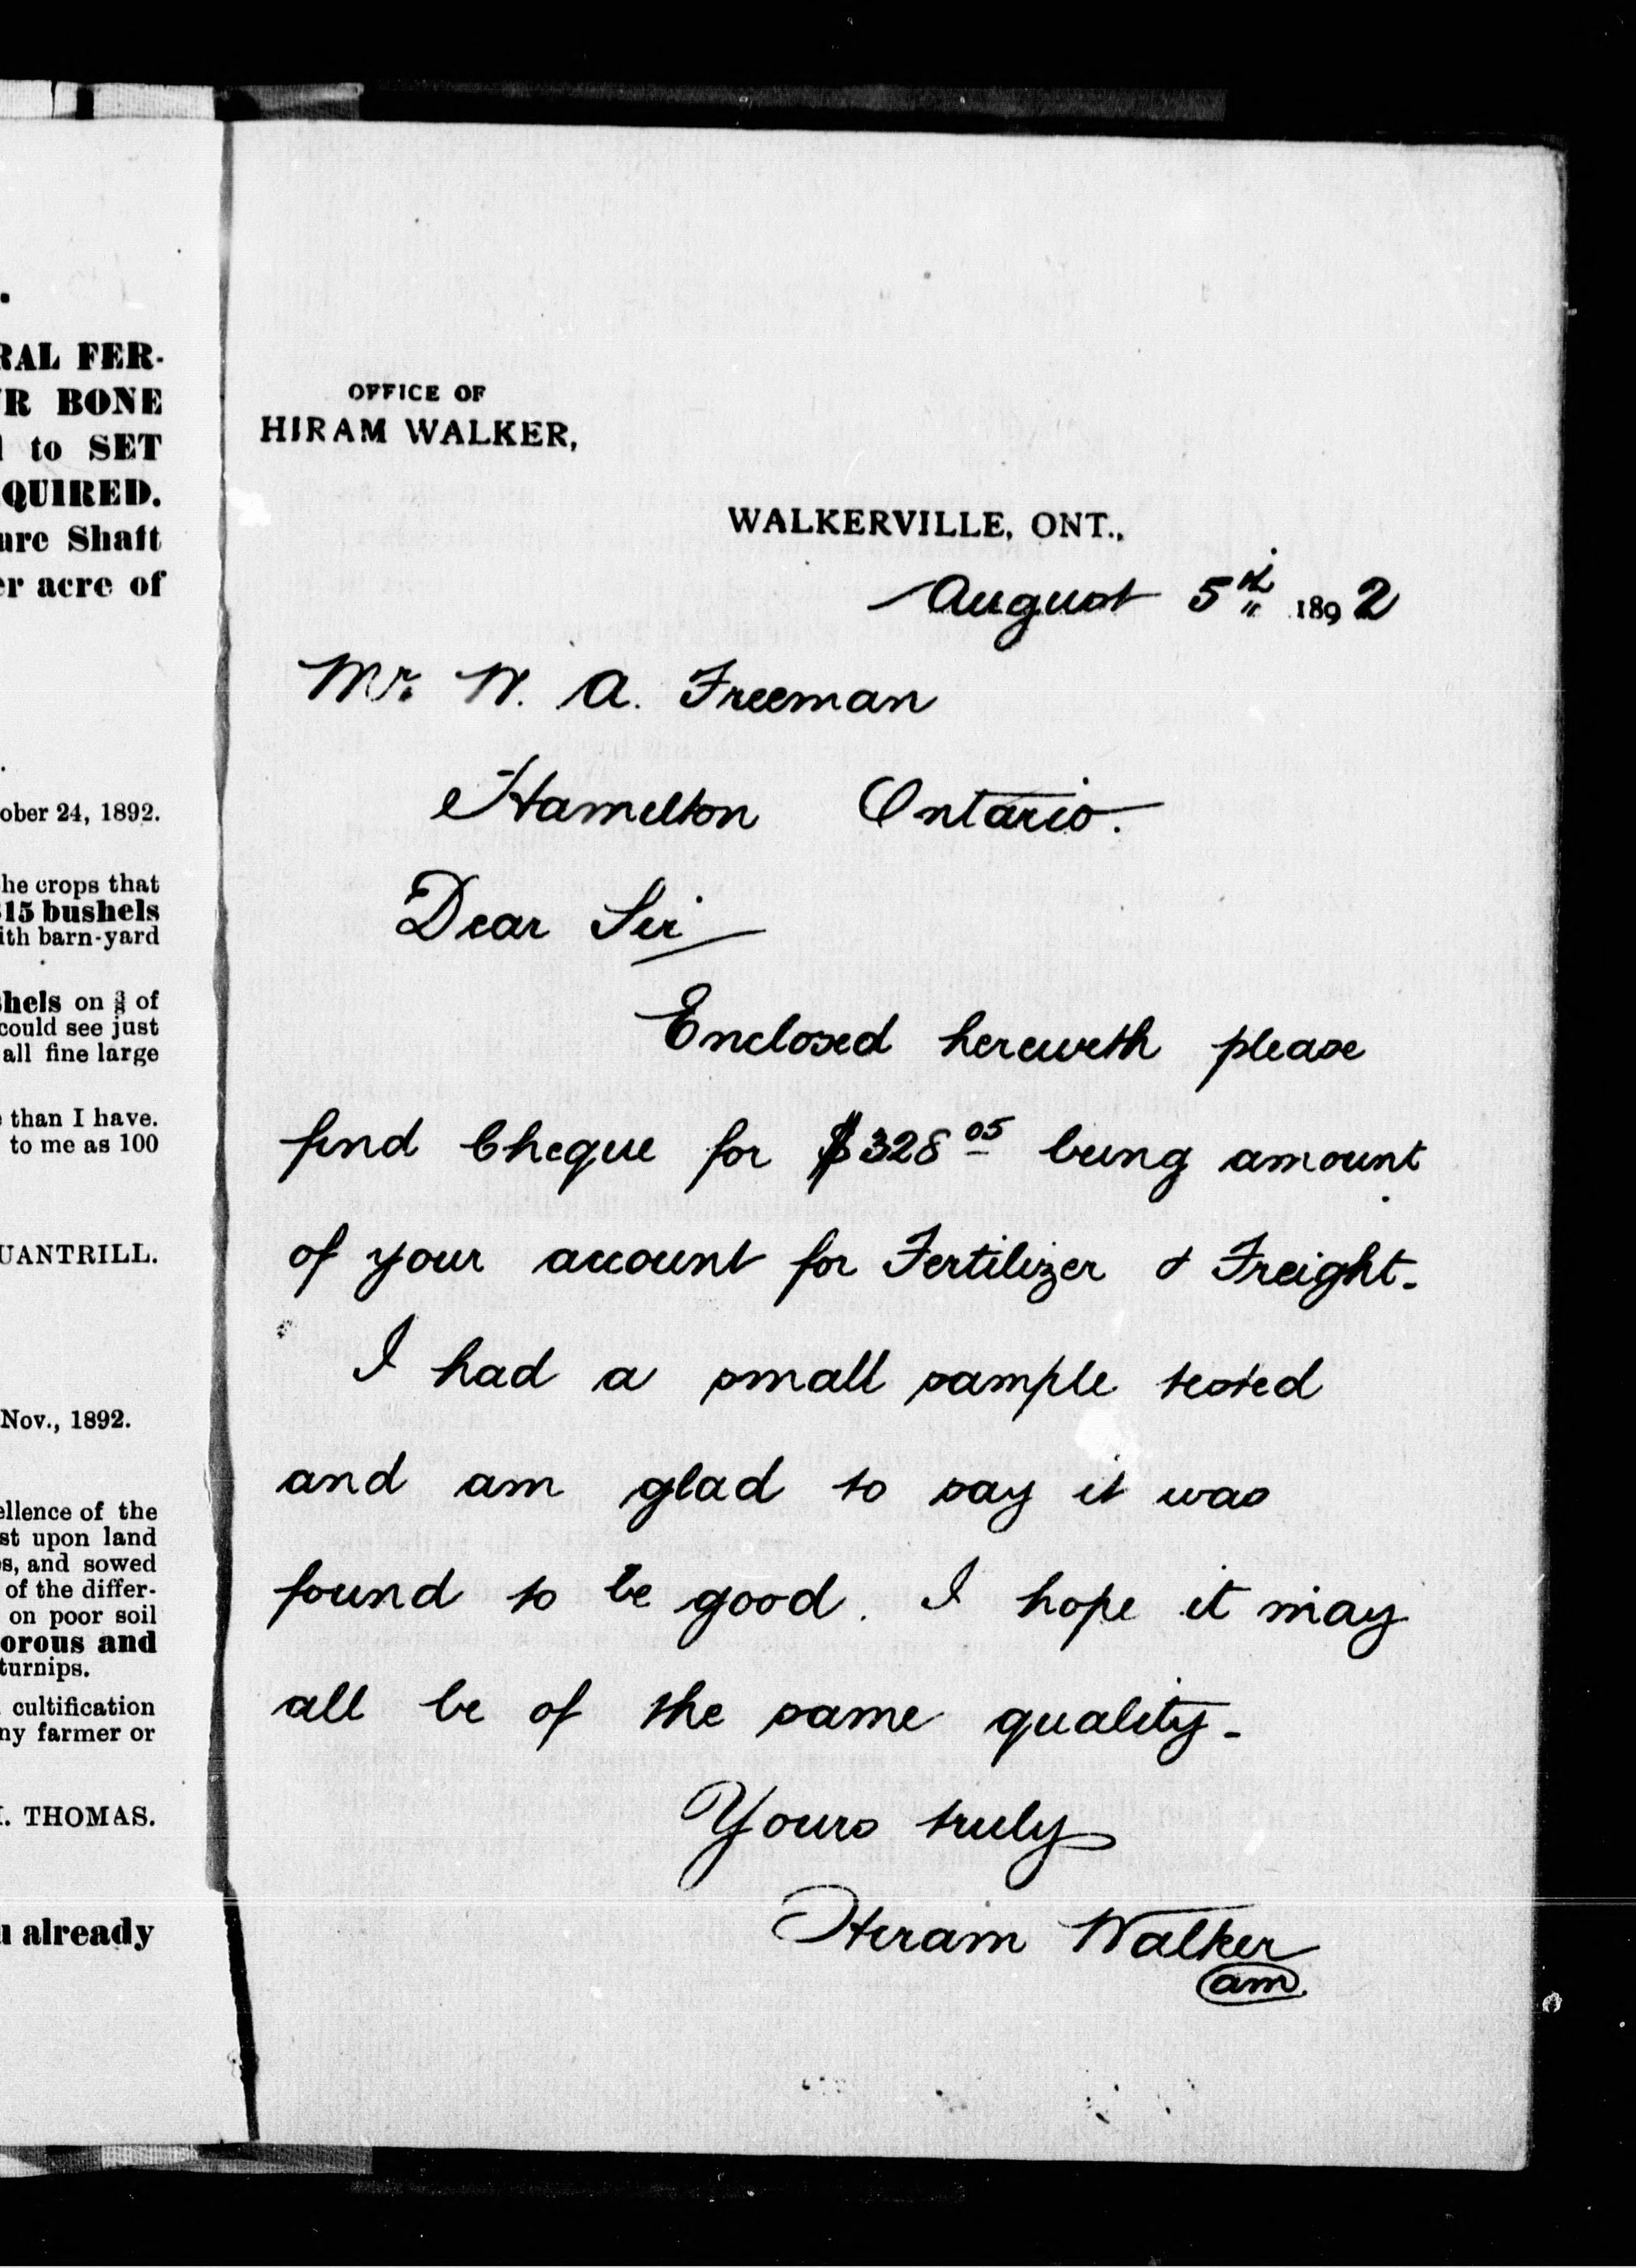 .
RAL FER-
R BONE
to SET
QUIRED.
ure Shaft
er acre of
.
ober 24, 1892.
he crops that
15 bushels
ith barn-yard
hels on of
could see just
all fine large
than I have.
to me as 100
UANTRILL.
Nov., 1892.
ellence of the
st upon land
s, and sowed
of the differ-
on poor soil
orous and
turnips.
cultification
ny farmer or
. THOMAS.
already
OFFICE OF
HIRAM WALKER,
WALKERVILLE, ONT.,
August 5th 1892
Mr. W. A. Freeman
Hamilton Ontario.
Dear Sir
Enclosed herewith please
find Cheque for $328 05 being amount
of your account for Fertilizer & Freight.
I had a small sample tested
and am glad to say it was
found to be good. I hope it may
all be of the same quality.
Yours truly
Hiram Walker
am.